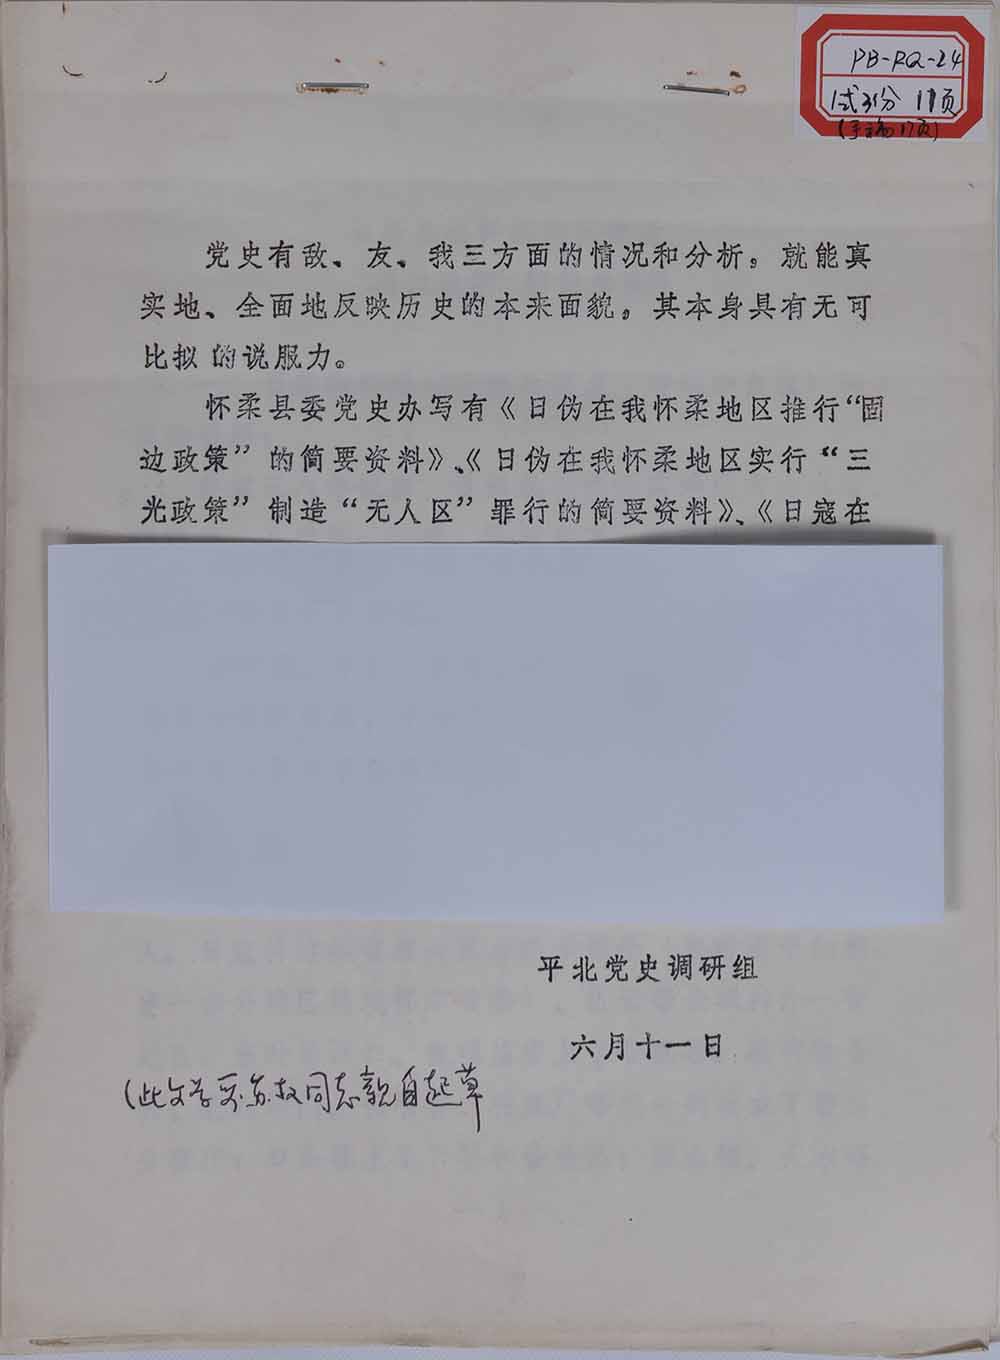 PB-RQ-24
1式3份 11页
(手稿17页)
党史有敌、友、我三方面的情况和分析。就能真
实地、全面地反映历史的本来面貌。其本身具有无可
比拟的说服力。
怀柔县委党史办写有《日伪在我怀柔地区推行“固
边政策”的简要资料》、《日伪在我怀柔地区实行“三
光政策”制造“无人区”罪行的简要资料》、《日寇在
平北党史调研组
六月十一日
(此文 同志亲自起草